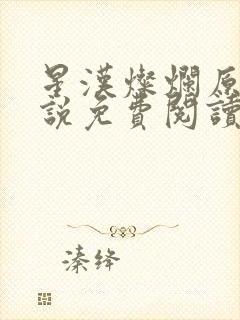 星漢燦爛原
說免費閱讀
溱绛